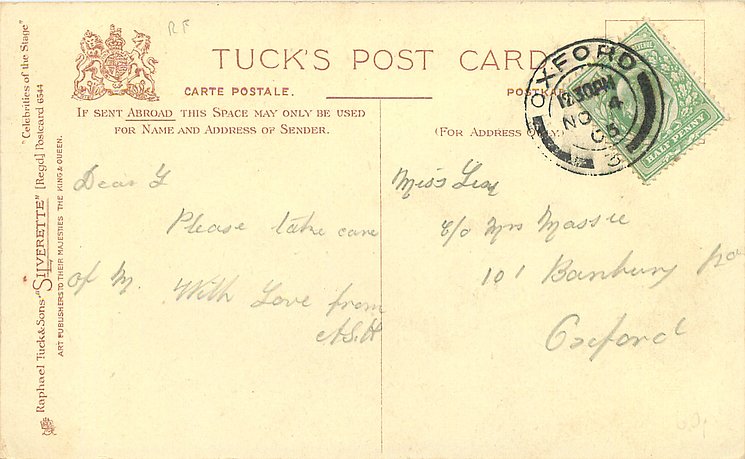 RF
TUCK'S POST CARD
CARTE POSTALE.
POSTKAR
IF SENT ABROAD THIS SPACE MAY ONLY BE USED
FOR NAME AND ADDRESS OF SENDER.
(FOR ADDRESS ONLY.)
OXFORD
12.30PM
NO 4
05
HALF PENNY
"Celebrities of the Stage"
Raphael Tuck & Sons' "SILVERETTE" [Regd.] Postcard 6544
ART PUBLISHERS TO THEIR MAJESTIES THE KING & QUEEN.
Dear G
Please take care
of M. With Love from
A.S.H
Miss
c/o Mrs Massie
101 Banbury
Oxford